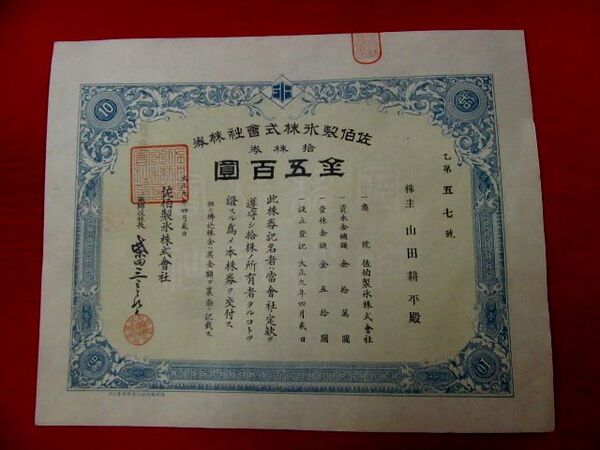 佐伯製氷株式會社株券
拾株券
金五百圓
乙第五七號
株主 山田耕平殿
一商號 佐伯製氷株式會社
一資本金總額 金拾萬圓
一壹株金額 金五拾圓
一設立登記 大正九年四月貳日
此株券記名者ハ當會社ノ定款ヲ
遵守シ拾株ノ所有者タルコトヲ
證スル爲メ本株券ヲ交付ス
但シ拂込株金ハ其金額ヲ裏面ニ記載ス
大正九年四月貳日
佐伯製氷株式會社
10
拾
拾
10